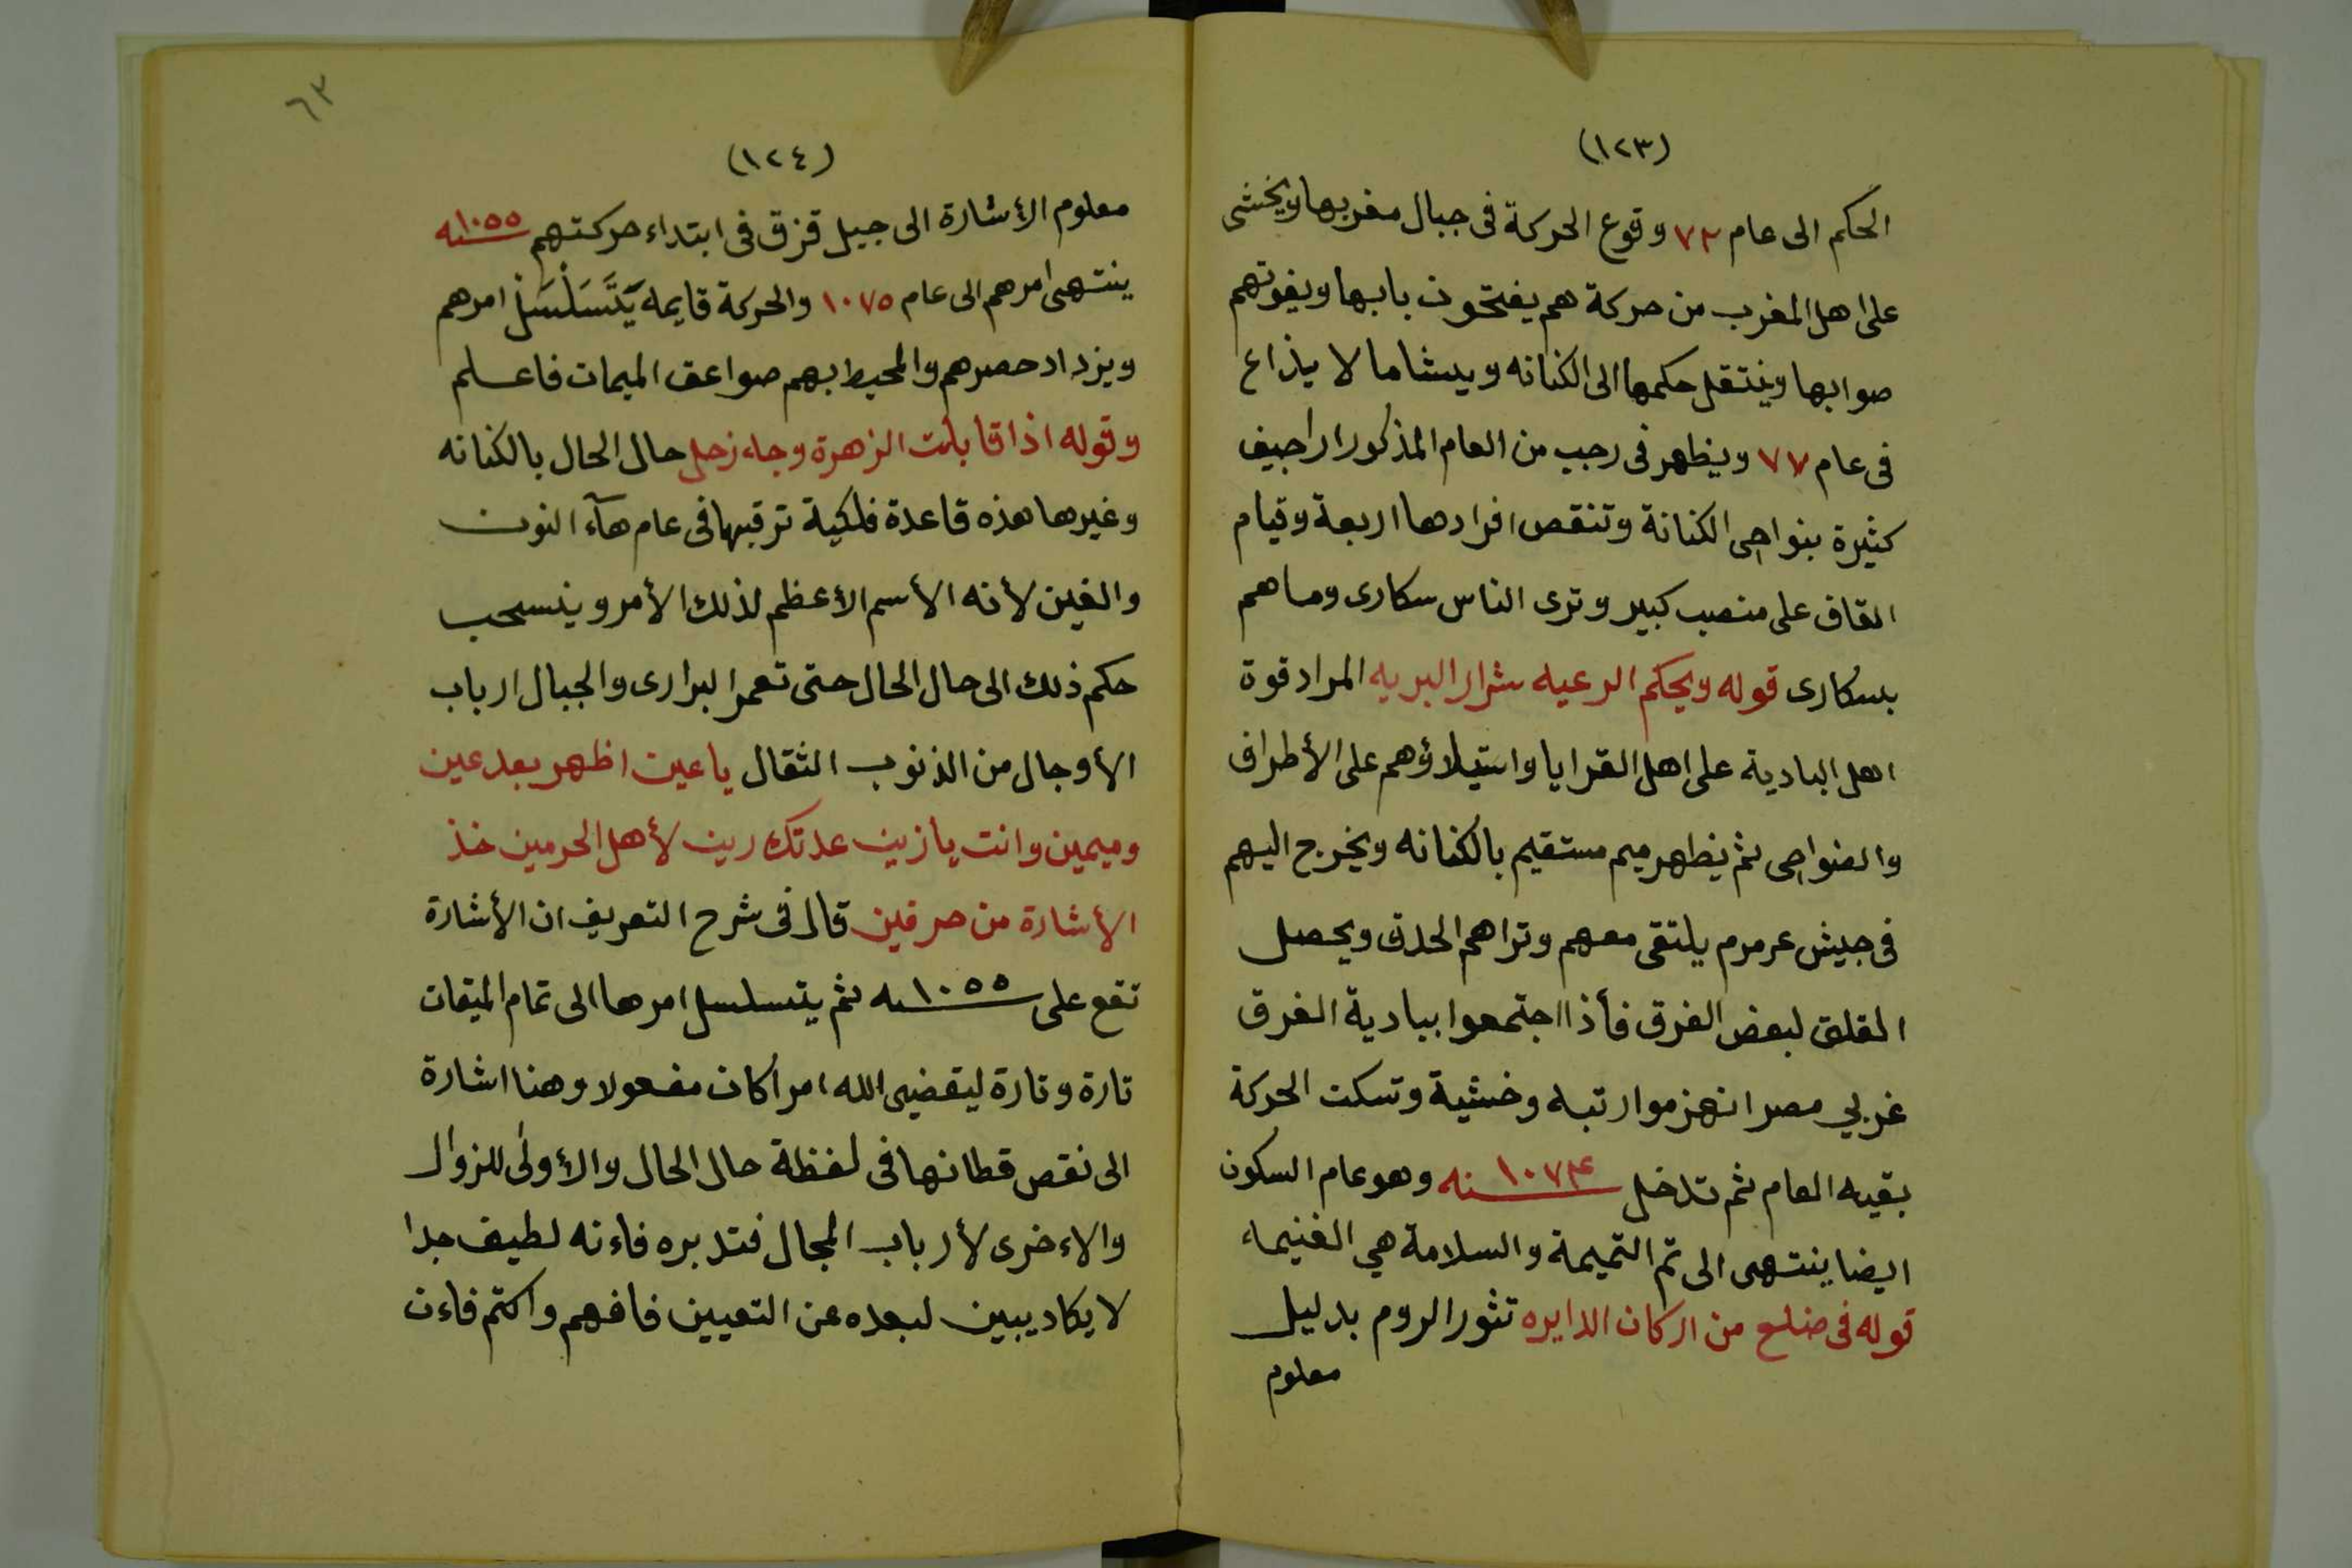 (١٢٣)
الحكم الى عام ٧٣ وقوع الحركة فى جبال مغربها ويخشى
على اهل المغرب من حركة هم يفتحون بابها ويفوتهم
صوابها وينتقل حكمها الى الكنانه ويشاما لا يذاع
فى عام ٧٧ ويظهر فى رجب من العام المذكور اراجيف
كثيرة بنواحى الكنانة وتنقص افرادها اربعة وقيام
القاف على منصب كبير وترى الناس سكارى وماهم
بسكارى قوله ويحكم الرعيه شرار البريه المراد قوة
اهل البادية على اهل القرايا واستيلاؤهم على الأطراف
والضواحى ثم يظهر ميم مستقيم بالكنانه ويخرج اليهم
فى جيش عرمرم يلتقى معهم وتراهم الحدق ويحصل
القلق لبعض الفرق فأذا اجتمعوا ببادية الغرق
غربي مصر انهزموا رتبه وخشية وتسكت الحركة
بقيه العام ثم تدخل سنه ١٠٧٤ وهو عام السكون
ايضا ينتهى الى تم التميمة والسلامة هي الغنيماء
قوله فى ضلع من اركان الدايره تثور الروم بدليل
معلوم
٦٣
(١٢٤)
معلوم الأشارة الى جيل قزق فى ابتداء حركتهم سنه ١٠٥٥
ينتهى امرهم الى عام ١٠٧٥ والحركة قايمه يَتَسَلْسَلْ امرهم
ويزداد حصرهم والمحيط بهم صواعق الميمات فاعلم
وقوله اذا قابلت الزهرة وجاء زحل حال الحال بالكنانه
وغيرها هذه قاعدة فلكية ترقبها فى عام هآء النون
والغين لأنه الأسم الأعظم لذلك الأمر وينسحب
حكم ذلك الى حال الحال حتى تعمر البرارى والجبال ارباب
الأوجال من الذنوب الثقال ياعين اظهر بعد عين
وميمين وانت يازين عدتك رين لأهل الحرمين خذ
الأشارة من حرفين قال فى شرح التعريف ان الأشارة
تقع على سنه ١٠٥٥ ثم يتسلسل امرها الى تمام الميقات
تارة وتارة ليقضى الله امرا كان مفعولا وهنا اشارة
الى نقص قطانها فى لفظة حال الحال والأولى للزوال
والاءخرى لأرباب المجال فتدبره فاءنه لطيف جدا
لا يكاد يبين لبعده عن التعيين فافهم واكتم فاءن